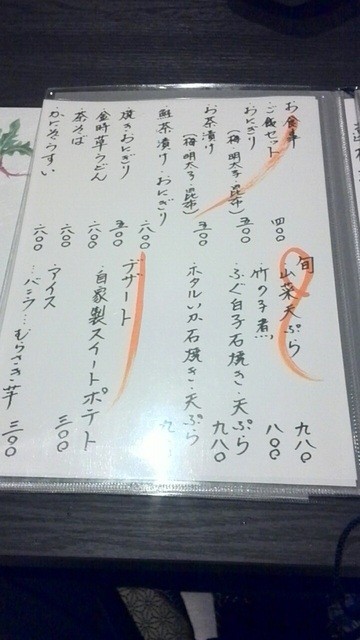 お食事
ご飯セット 四〇〇
おにぎり
(梅・明太子・昆布) 五〇〇
お茶漬け
(梅・明太子・昆布) 五〇〇
鮭茶漬け・おにぎり 六〇〇
焼きおにぎり 五〇〇
金時草うどん 六〇〇
茶そば 六〇〇
かにぞうすい 六〇〇
旬
山菜天ぷら 九八〇
竹の子煮 八〇〇
ふぐ白子石焼き・天ぷら 九八〇
ホタルいか石焼き・天ぷら 九
デザート
自家製スイートポテト 三〇〇
アイス
・バニラ・むらさき芋 三〇〇